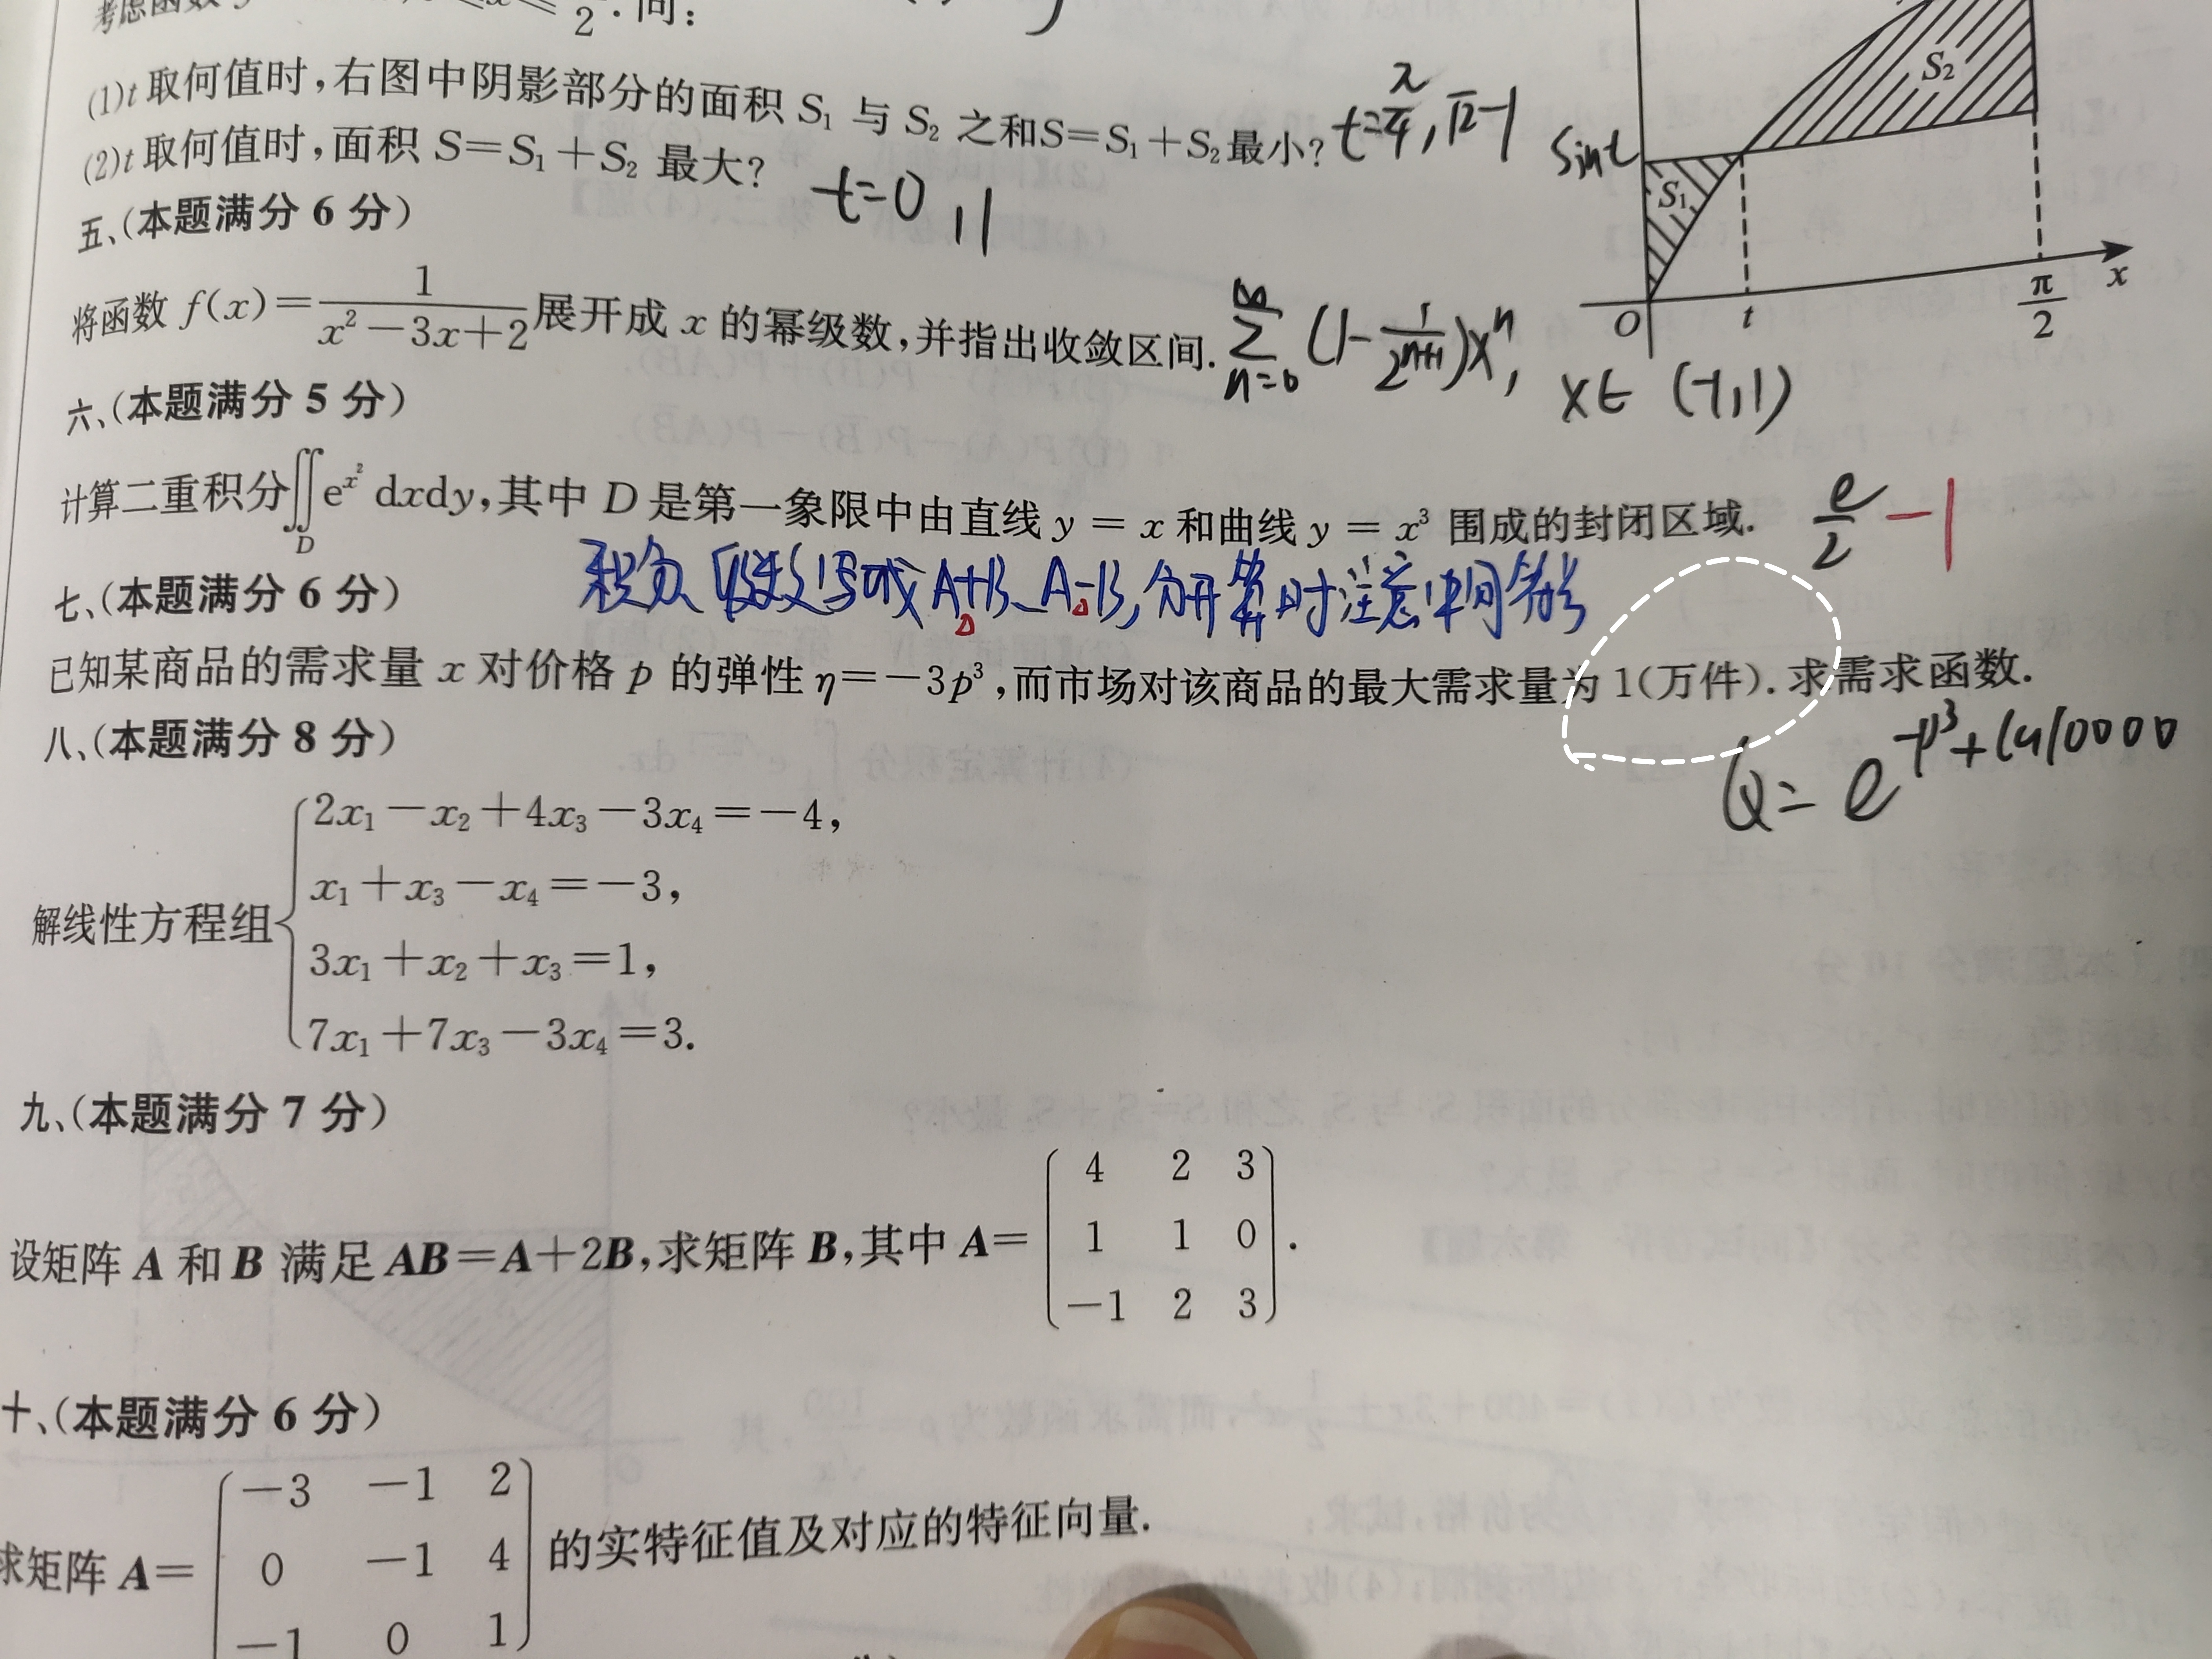 考虑函数
2 . 问:
(1)t 取何值时,右图中阴影部分的面积 S₁ 与 S₂ 之和S=S₁+S₂最小? t=π/4, √2-1
(2)t 取何值时,面积 S=S₁+S₂ 最大? t=0, 1
sint
S₁
S₂
O t π/2 x
五、(本题满分 6 分)
将函数 f(x)=1/(x²-3x+2)展开成 x 的幂级数,并指出收敛区间. ∑_{n=0}^{∞} (1-1/2ⁿ⁺¹)xⁿ, x∈(-1,1)
六、(本题满分 5 分)
计算二重积分∬_D e^{x²} dxdy,其中 D 是第一象限中由直线 y = x 和曲线 y = x³ 围成的封闭区域. e/2-1
七、(本题满分 6 分)
已知某商品的需求量 x 对价格 p 的弹性 η=-3p³,而市场对该商品的最大需求量为 1(万件). 求需求函数.
Q= e^{-p³+ln10000}
八、(本题满分 8 分)
2x₁-x₂+4x₃-3x₄=-4,
x₁+x₃-x₄=-3,
解线性方程组
3x₁+x₂+x₃=1,
7x₁+7x₃-3x₄=3.
九、(本题满分 7 分)
4 2 3
设矩阵 A 和 B 满足 AB=A+2B,求矩阵 B,其中 A= 1 1 0 .
-1 2 3
十、(本题满分 6 分)
-3 -1 2
求矩阵 A= 0 -1 4 的实特征值及对应的特征向量.
-1 0 1